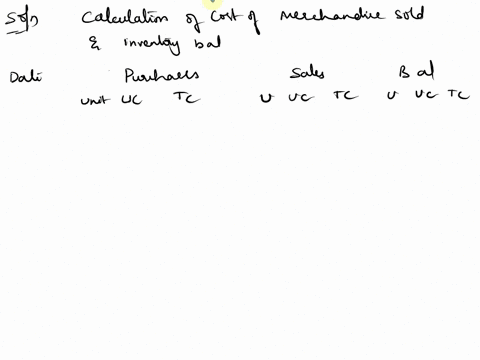 Soln Calculation of Cost of Merchandise Sold
& inventory bal
Date Purchases Sales Bal
unit UC TC U UC TC U UC TC